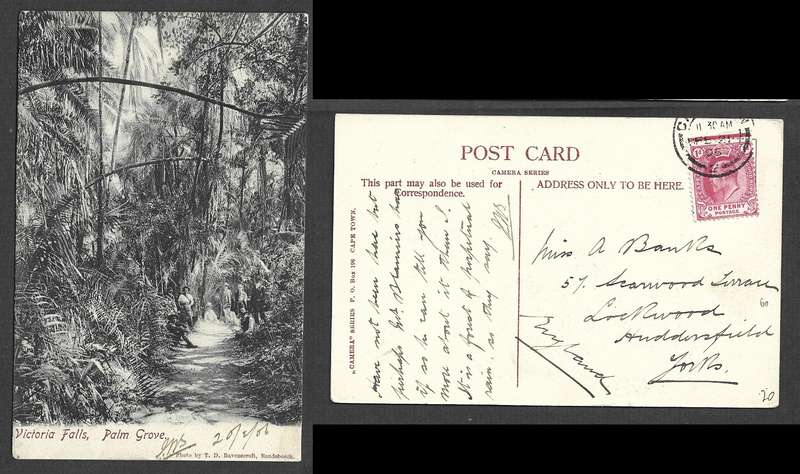 Victoria Falls, Palm Grove.
20/2/06
Photo by T. D. Ravenscroft, Rondebosch.
POST CARD
CAMERA SERIES
This part may also be used for
Correspondence.
ADDRESS ONLY TO BE HERE.
"CAMERA" SERIES P. O. Box 106 CAPE TOWN.
Have not been here but
perhaps Blamires has
if so he can tell you
more about it than I.
It is a forest of perpetual
rain, so they say.
11 30 AM
06
ONE PENNY
POSTAGE
Miss A Banks
57, Terrace
Lockwood
Huddersfield
Yorks.
England
60
20